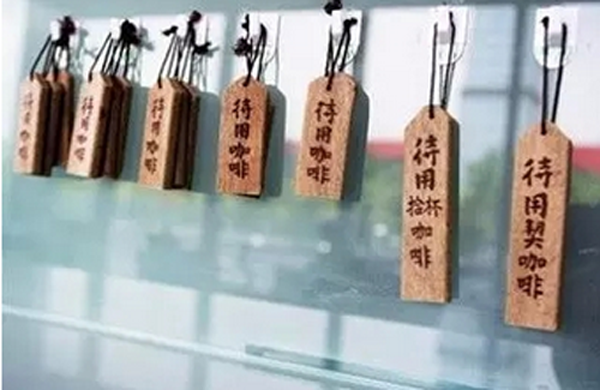 待用咖啡
待用咖啡
待用咖啡
待用咖啡
待用咖啡
待用拾杯咖啡
待用契咖啡